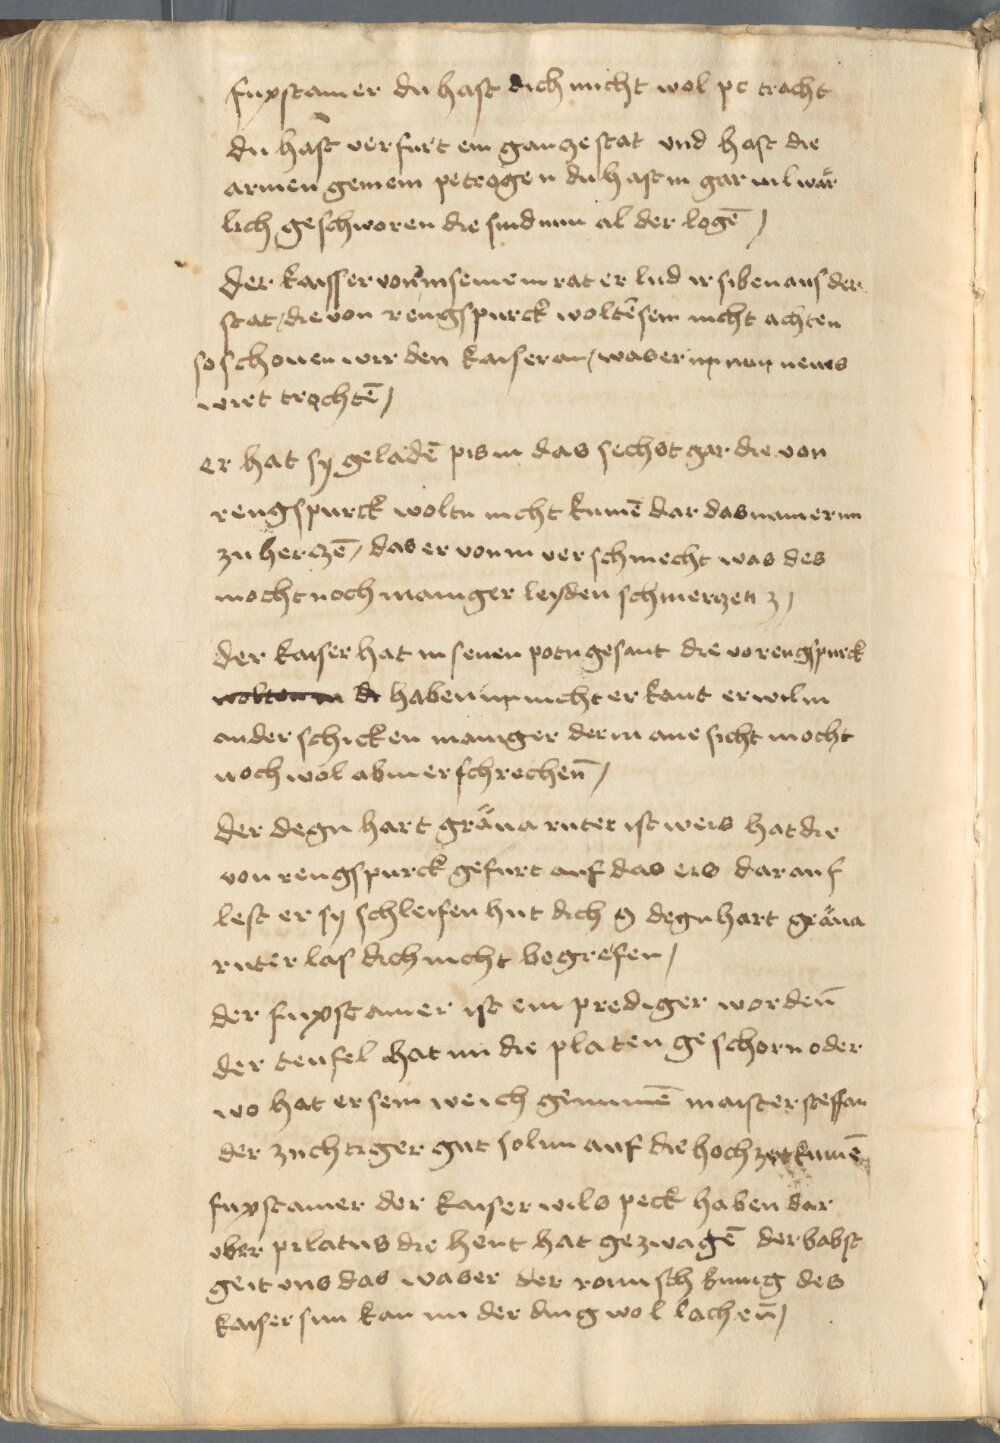 fuxstainer du hast dich nicht wol pe tracht
du hast verfurt ein gancze stat und hast die
armen gemein petrogen du hast in gar vil wär
lich geschworen die sind nun al der logē /
der kaisser von in seinem rat er lud ir siben aus der
stat / die von rengspurck woltēsein nicht achten
so schouen wir den kaiser an / was er im nun neues
wirt trachtē /
er hat sy geladē pis in das sechst gar die von
rengspurck woltn nicht kumē dar das nam er im
zu herczē / das er von in ver schmecht was des
mocht noch maniger leyden schmerczen z /
der kaiser hat in seinen potn gesant die vo rengspurck
haben im nicht er kant er wil in
ander schicken maniger der in ane sicht mocht
noch wol ab in erschrechen̄ /
der degn hart gräna ritter ist weis hat die
von rengspurck gefurt auf das eis darauf
lest er sy schleifen hut dich o degnhart gräna
ritter las dich nicht begreifen /
der fuxstainer ist ein prediger worden̄
der teufel hat im die platen geschorn oder
wo hat er sein weich genumē maister steffan
der zuchtiger gut sol im auf die hochzeit kumē
fuxstainer der kaiser wils peck haben dar
ober pilatus die hent hat gezwagē der babst
geit uns das waser der romisch kunig des
kaiser sun kan im der ding wol lachen̄ /